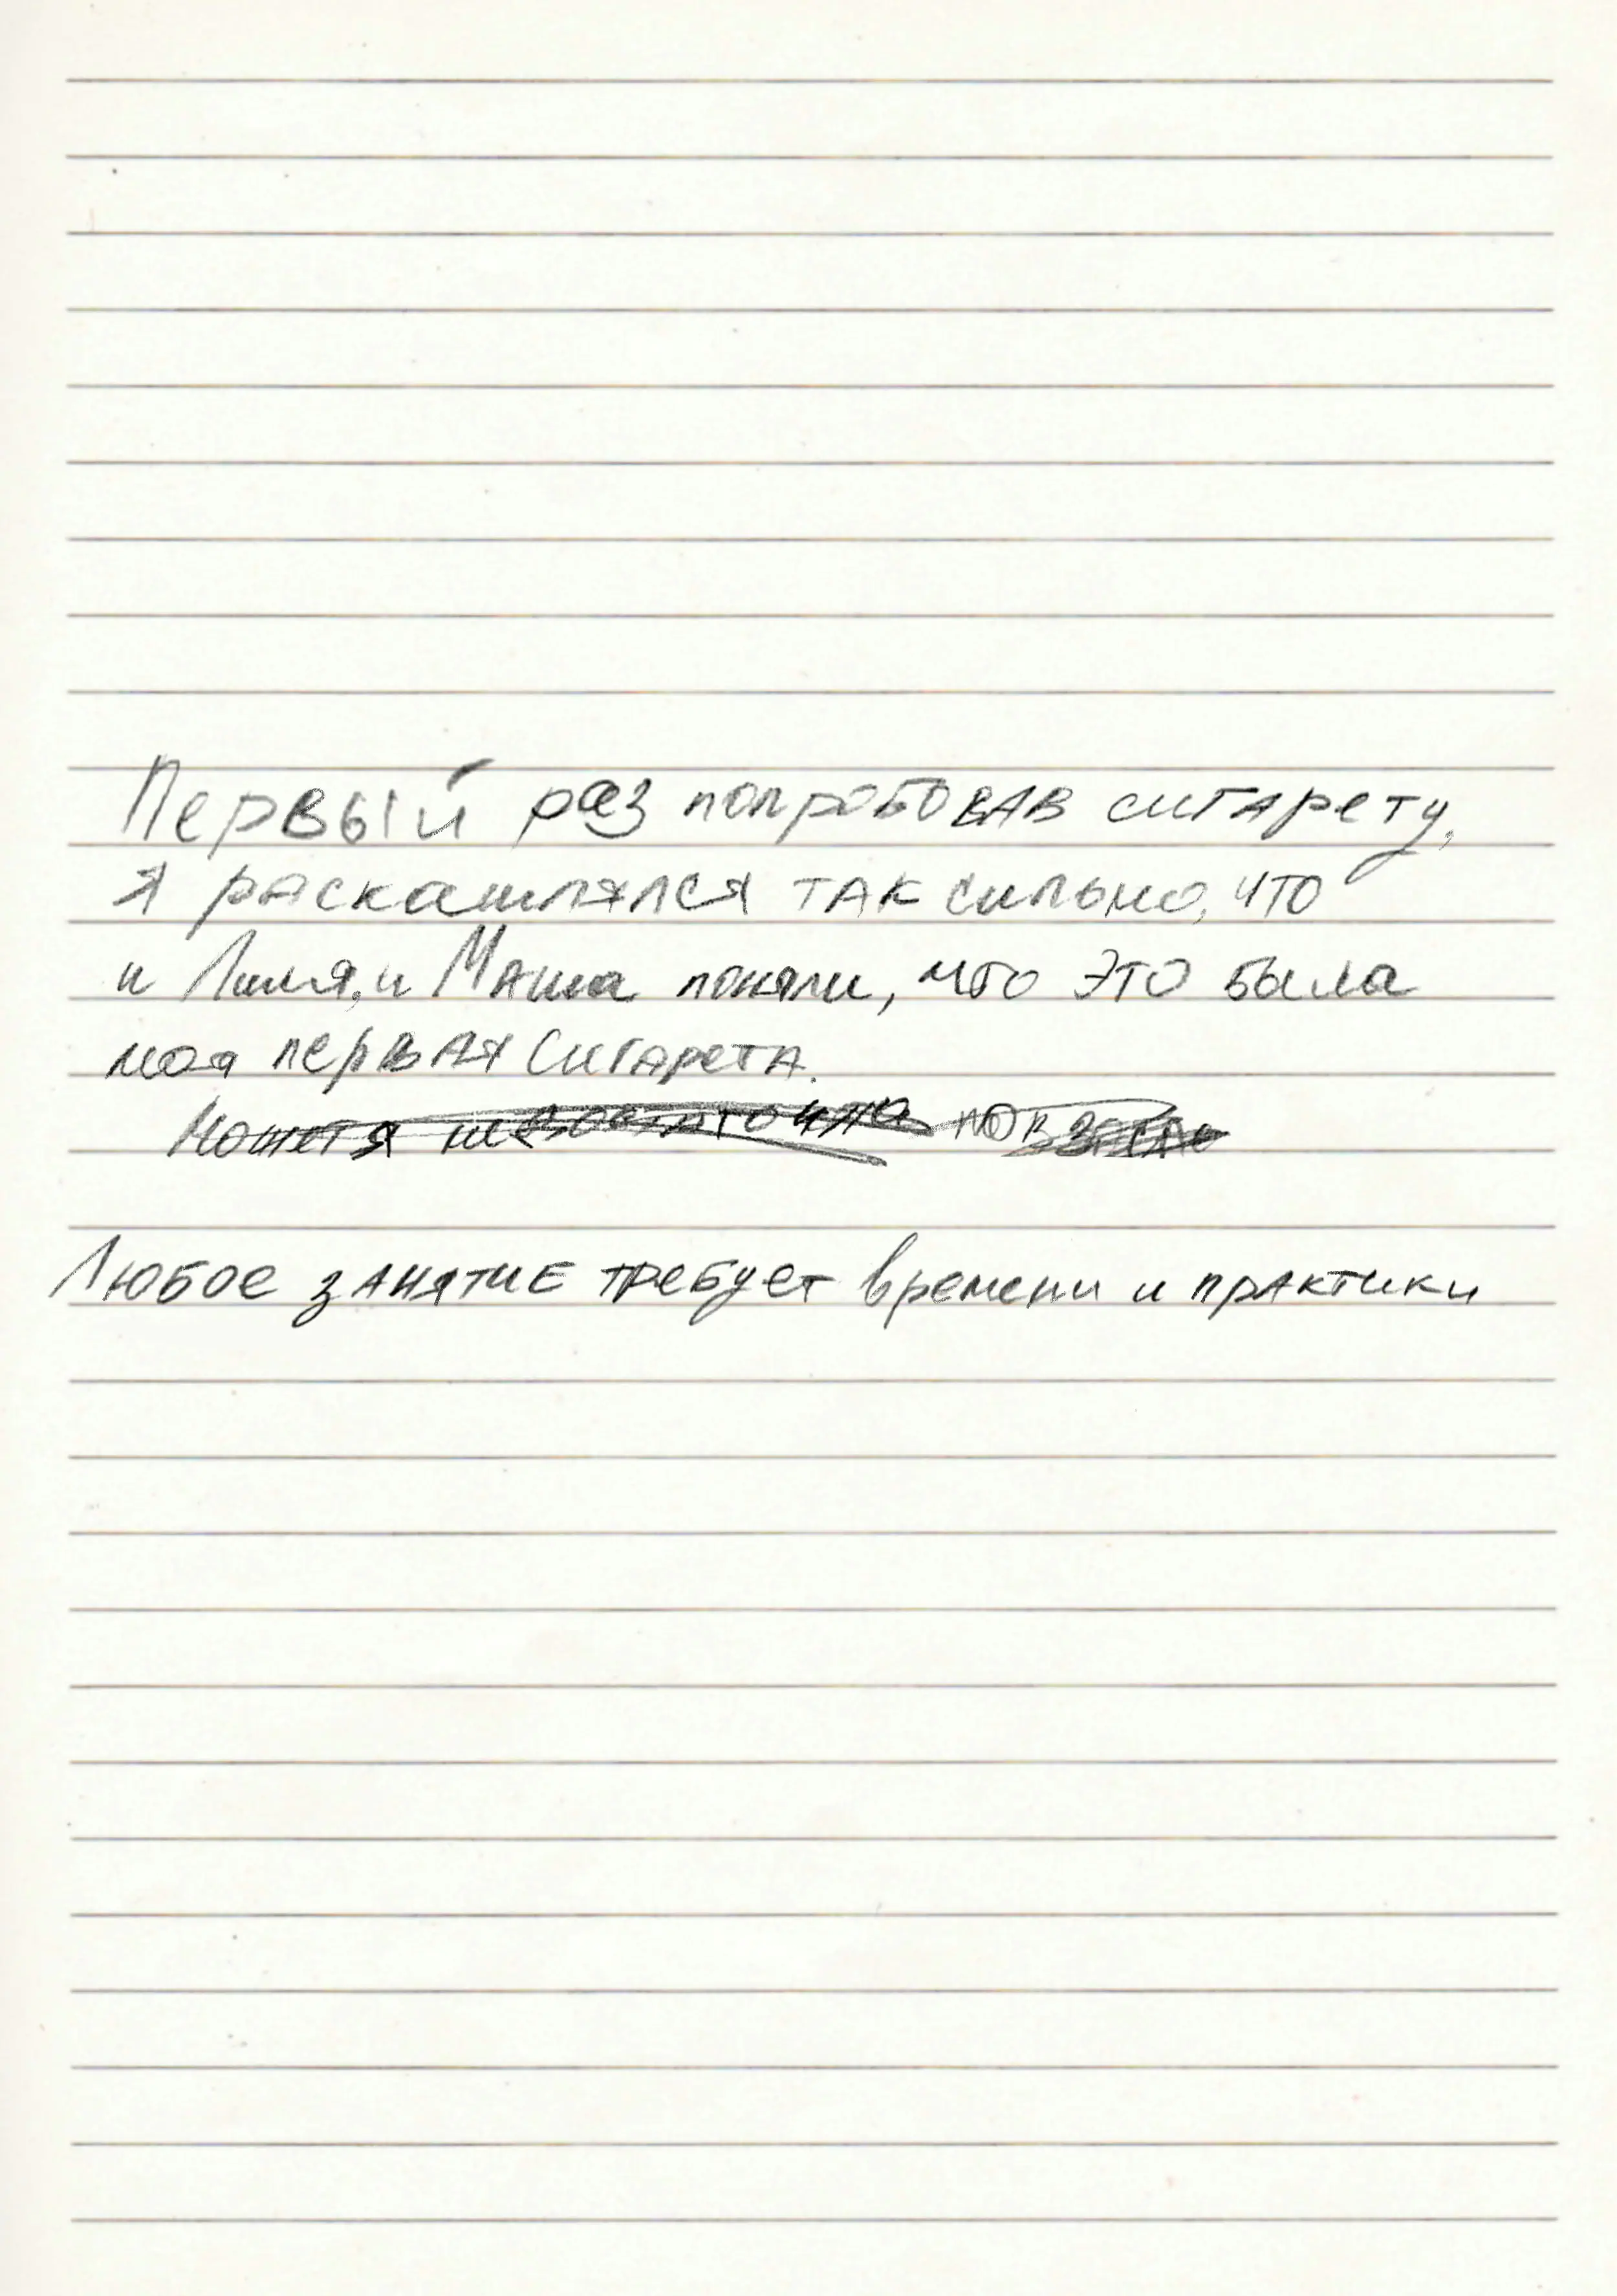 Первый раз попробовав сигарету,
я раскашлялся так сильно, что
и Лиля, и Маша поняли, что это была
моя первая сигарета.
Может я
Любое занятие требует времени и практики